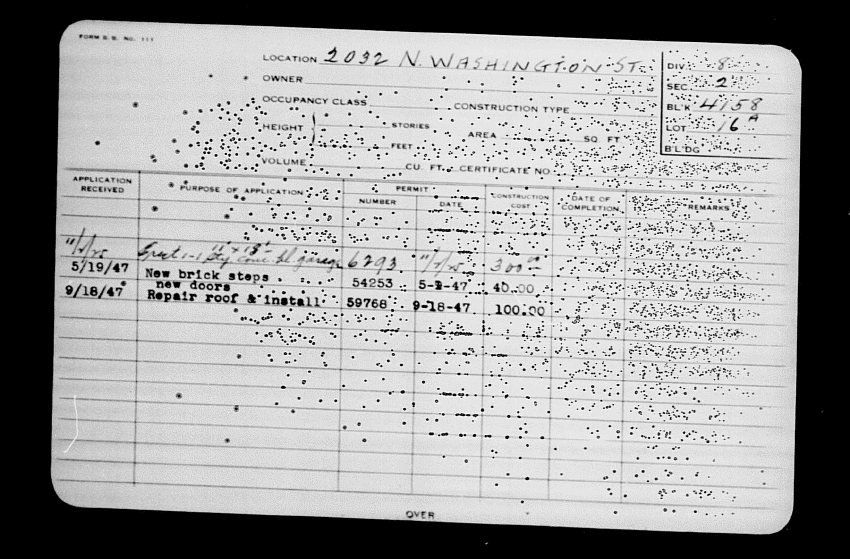 FORM S.S. NO. 111
LOCATION 2032 N. WASHINGTON ST. DIV 8
OWNER SEC. 2
OCCUPANCY CLASS CONSTRUCTION TYPE BL'K 4158
HEIGHT STORIES AREA SQ FT LOT 16 A
FEET BL'DG
VOLUME CU. FT. CERTIFICATE NO.
APPLICATION RECEIVED PURPOSE OF APPLICATION PERMIT NUMBER DATE CONSTRUCTION COST DATE OF COMPLETION REMARKS
Erect 1-1 sty conc bl garage 6293 300
5/19/47 New brick steps 54253 5-2-47 40.00
new doors
9/18/47 Repair roof & install 59768 9-18-47 100.00
OVER